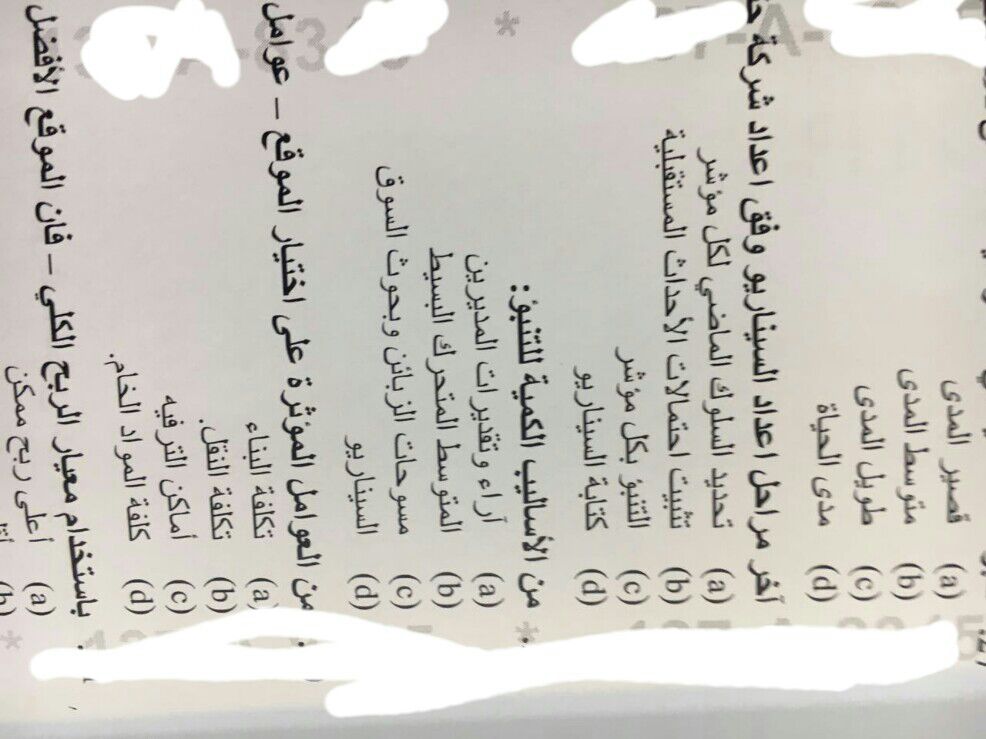 (a) قصير المدى
(b) متوسط المدى
(c) طويل المدى
(d) مدى الحياة
آخر مراحل اعداد السيناريو وفق اعداد شركة
(a) تحديد السلوك الماضي لكل مؤشر
(b) تثبيت احتمالات الأحداث المستقبلية
(c) التنبؤ بكل مؤشر
(d) كتابة السيناريو
من الأساليب الكمية للتنبؤ:
(a) آراء وتقديرات المديرين
(b) المتوسط المتحرك البسيط
(c) مسوحات الزبائن وبحوث السوق
(d) السيناريو
من العوامل المؤثرة على اختيار الموقع – عوامل
(a) تكلفة البناء
(b) تكلفة النقل.
(c) أماكن الترفيه
(d) كلفة المواد الخام.
باستخدام معيار الربح الكلي – فان الموقع الأفضل
(a) أعلى ربح ممكن
(b)